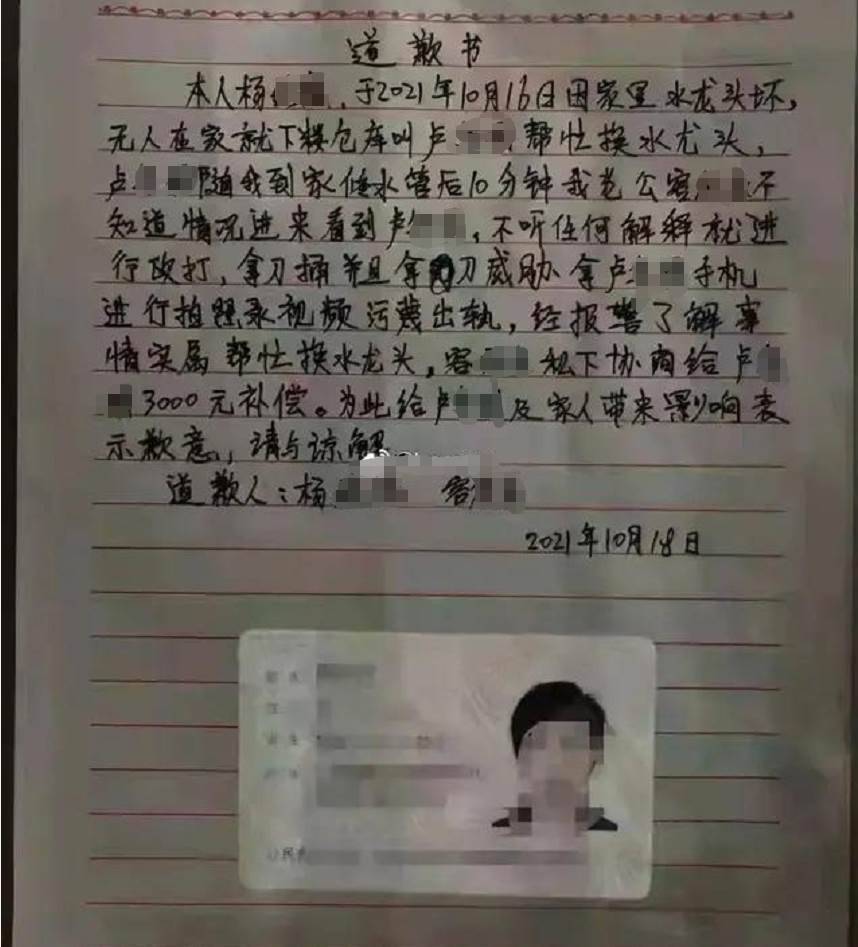 道歉书
本人杨 ，于2021年10月16日因家里水龙头坏，
无人在家就下楼仓库叫卢 帮忙换水龙头，
卢 随我到家修水管后10分钟我老公容 不
知道情况进来看到卢 ，不听任何解释就进
行殴打，拿刀捅并且拿 刀威胁拿卢 手机
进行拍照录视频污蔑出轨，经报警了解事
情实属帮忙换水龙头，容 私下协商给卢
3000元补偿。为此给卢 及家人带来影响表
示歉意，请与谅解
道歉人：杨 容
2021年10月18日